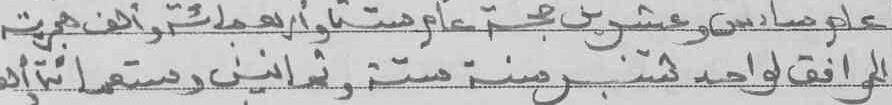 عام سادس وعشرين حجة عام ستة وأربعمائة وألف هجرية
الموافق لواحد شتنبر سنة ستة وثمانين وتسعمائة وألف